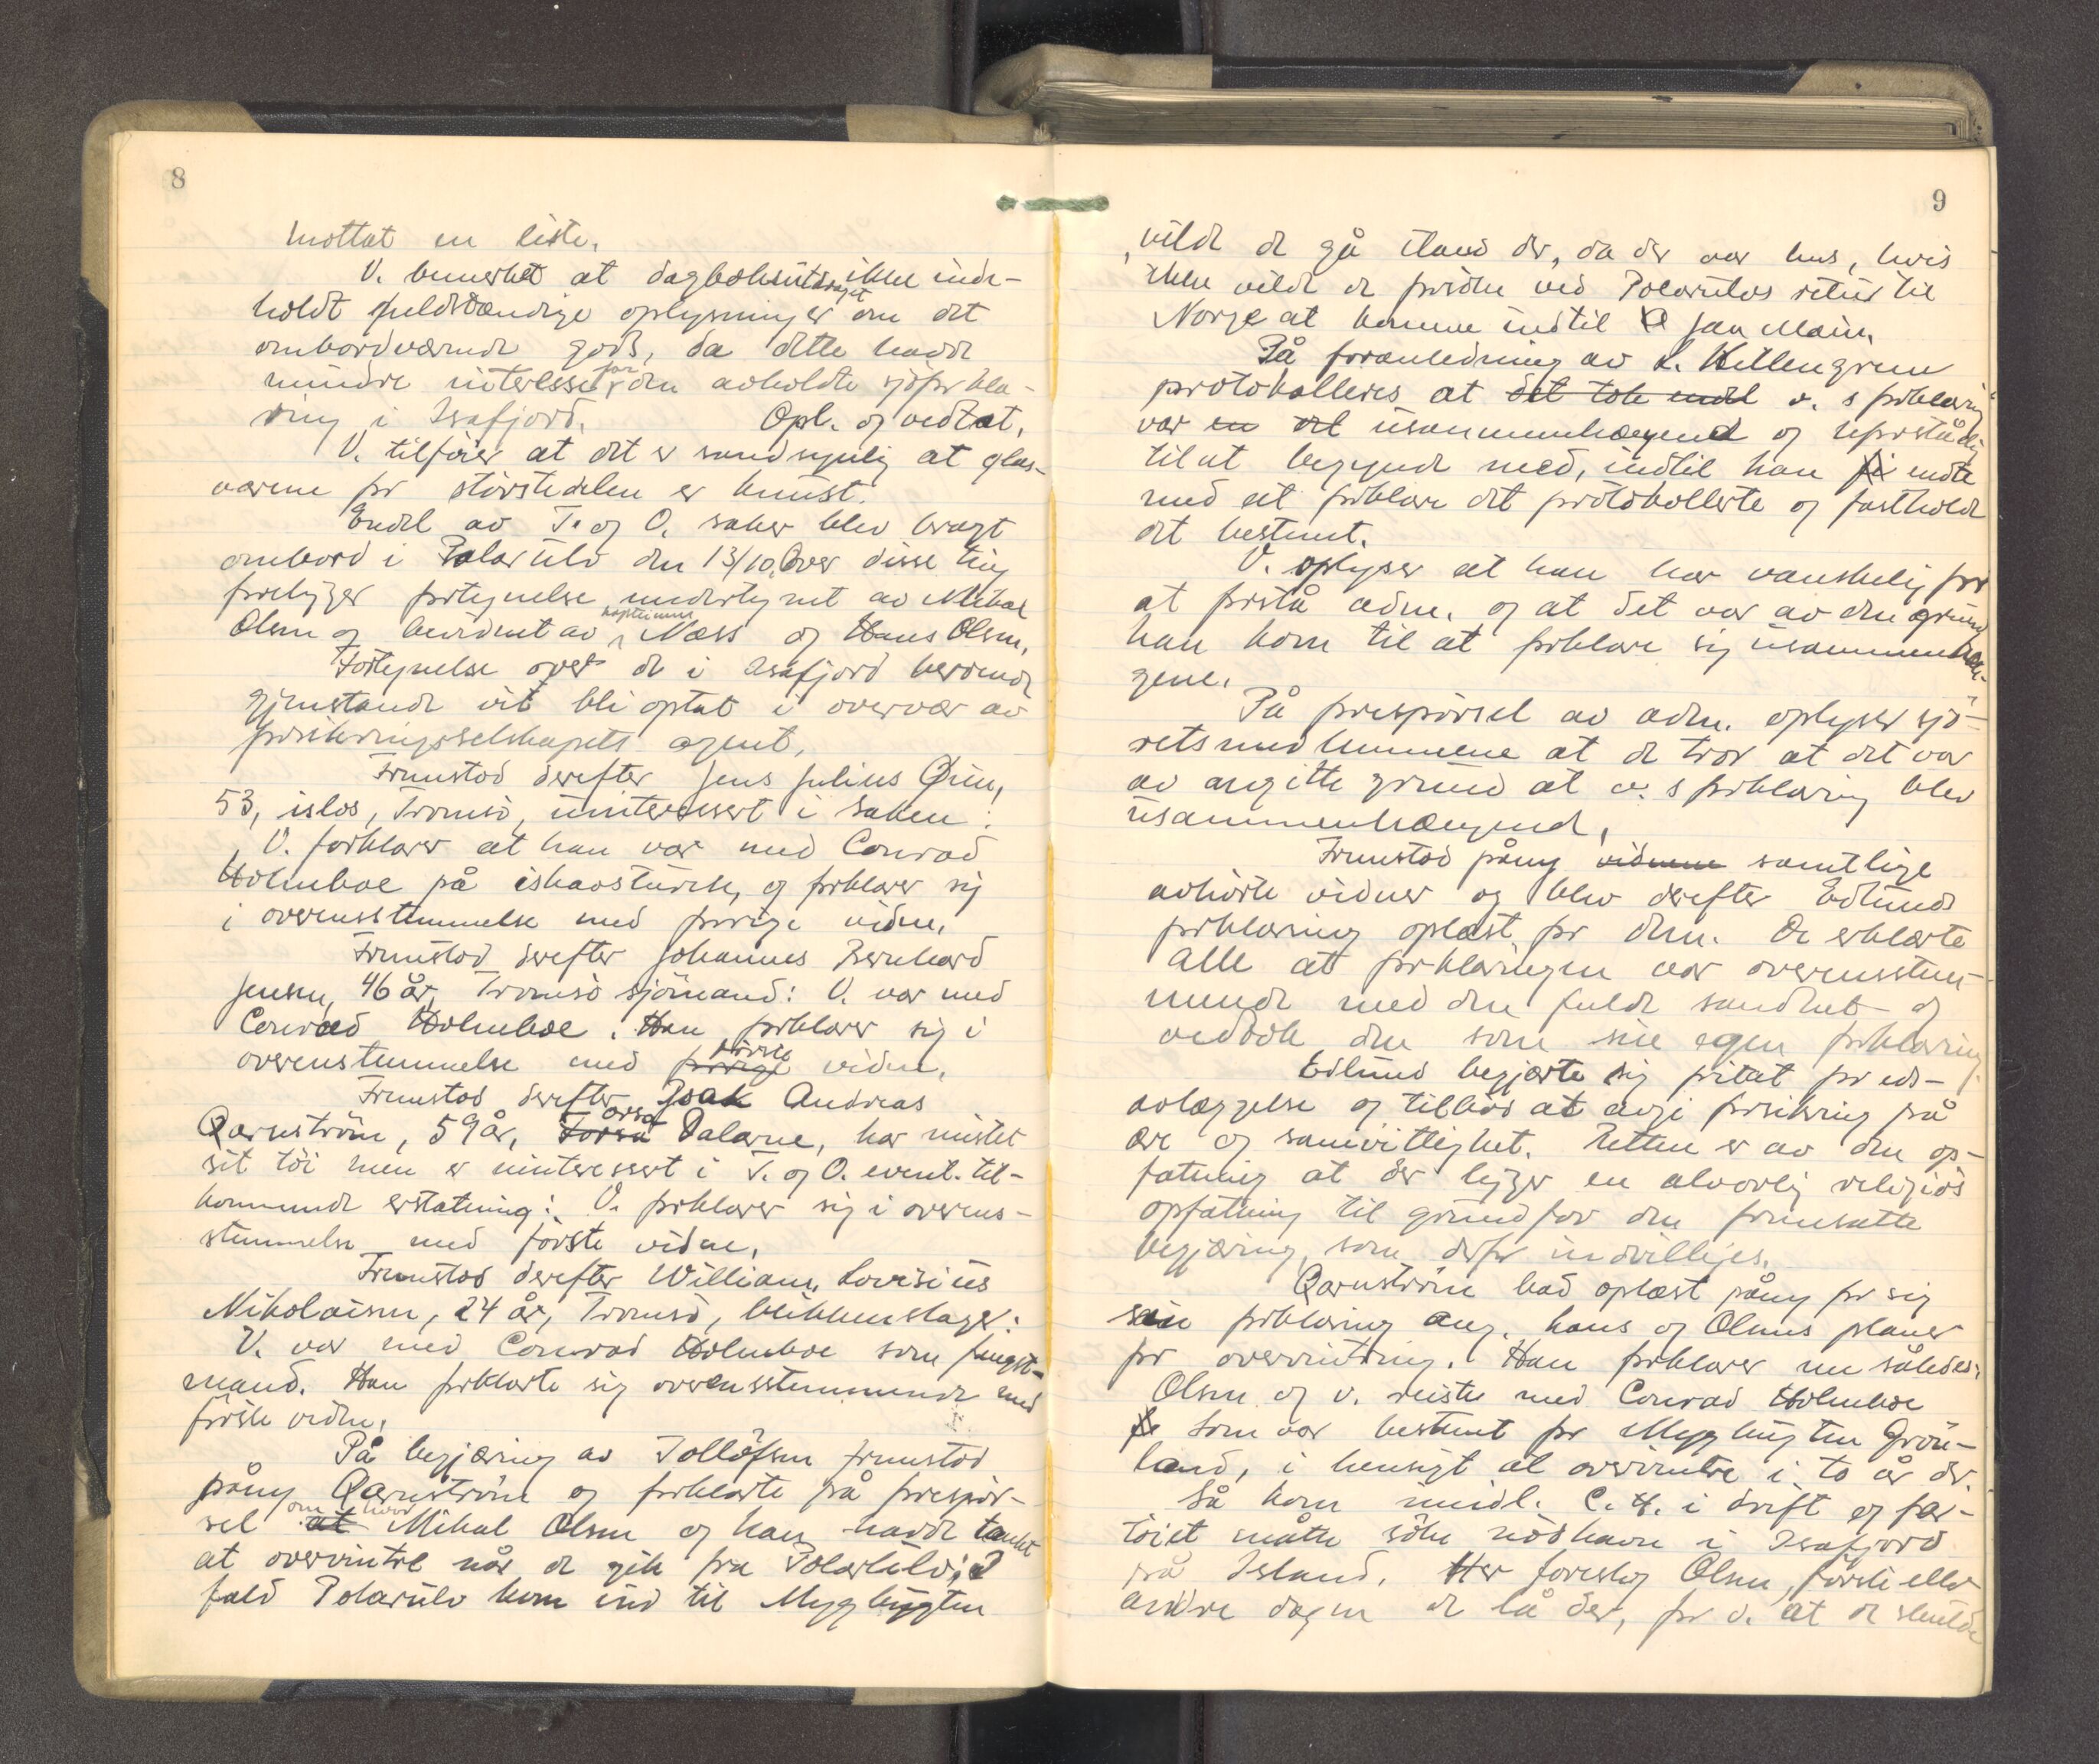 8
mottat en liste.
V. bemerket at dagboksutdraget ikke inde-
holdt fuldstændige oplysninger om det
ombordværende gods, da dette havde
mindre interesse for den avholdte sjöforkla-
ring i Isafjord. Opl. og vedtat.
V. tilföier at det er sandsynlig at glas-
varene for störstedelen er knust.
Endel av T. og O. saker blev bragt
ombord i Polarulv den 13/10. Over disse ting
foreligger fortegnelse undertegnet av Mikal
Olsen og bevidnet av kapteinene Næss og Hans Olsen.
Fortegnelse over de i Isafjord beroende
gjenstande vil bli optat i overvær av
forsikringsselskapets agent.
Fremstod derefter Jens Julius Öien,
53, islos, Tromsö, uinteressert i saken:
V. forklarer at han var med Conrad
Holmboe på ishavsturen, og forklarer sig
i overensstemmelse med forrige vidne.
Fremstod derefter Johannes Bernhard
Jensen, 46 år, Tromsö sjömand: V. var med
Conrad Holmboe. Han forklarer sig i
overenstemmelse med forrige förste vidne.
Fremstod derefter Isak Andreas
Qarnström, 59 år, Forsa Orsa Dalarne, har mistet
sit töi men er uinteressert i T. og O. event. til-
kommende erstatning: V. forklarer sig i overens-
stemmelse med förste vidne.
Fremstod derefter William Lovisius
Nikolaisen, 24 år, Tromsö, blikkenslager:
V. var med Conrad Holmboe som fangst-
mand. Han forklarte sig overensstemmende med
förste vidne.
På begjæring av Tollöfsen fremstod
påny Qarnström og forklarte på forespör-
sel at om hvor Mikal Olsen og han havde tænkt
at overvintre når de gik fra Polarulv: I
fald Polarulv kom ind til Myggbugten
9
vilde de gå iland der, da der var hus, hvis
ikke vilde de forsöke ved Polarulvs retur til
Norge at komme indtil Jan Main.
På foranledning av L. Killengreen
protokolleres at det tok endel v. s forklaring
var en del usammenhængende og uforståelig
til at begynde med, indtil han endte
med at forklare det protokollerte og fastholde
det bestemt.
V. oplyser at han har vanskelig for
at forstå adm. og at det var av den grund
han kom til at forklare sig usammenhæn-
gene.
På forespörsel av adm. oplyser sjö-
retsmedlemmene at de tror at det var
av angitte grund at v. s forklaring blev
usammenhængende.
Fremstod påny vidnene samtlige
avhörte vidner og blev derefter Edlunds
forklaring oplæst for dem. De erklærte
Alle at forklaringen var overensstem-
mende med den fulde sandhet og
vedtok den som sin egen forklaring.
Edlund begjærte sig fritat for eds-
avlæggelse og tilböd at avgi forsikring på
ære og samvittighet. Retten er av den op-
fatning at der ligger en alvorlig religiös
opfatning til grund for den fremsatte
begjæring, som derfor indvilliges.
Qarnström bad oplæst påny for sig
sin forklaring ang. hans og Olsens planer
for overvintring. Han forklarer nu således:
Olsen og v. reiste med Conrad Holmboe
som var bestemt for Myggbugten Grön-
land, i hensigt at overvintre i to år der.
Så kom imidl. C. H. i drift og far-
töiet måtte söke nödhavn i Isafjord
på Island. Her foreslog Olsen, förste eller
andre dagen de lå der, for v. at de skulde